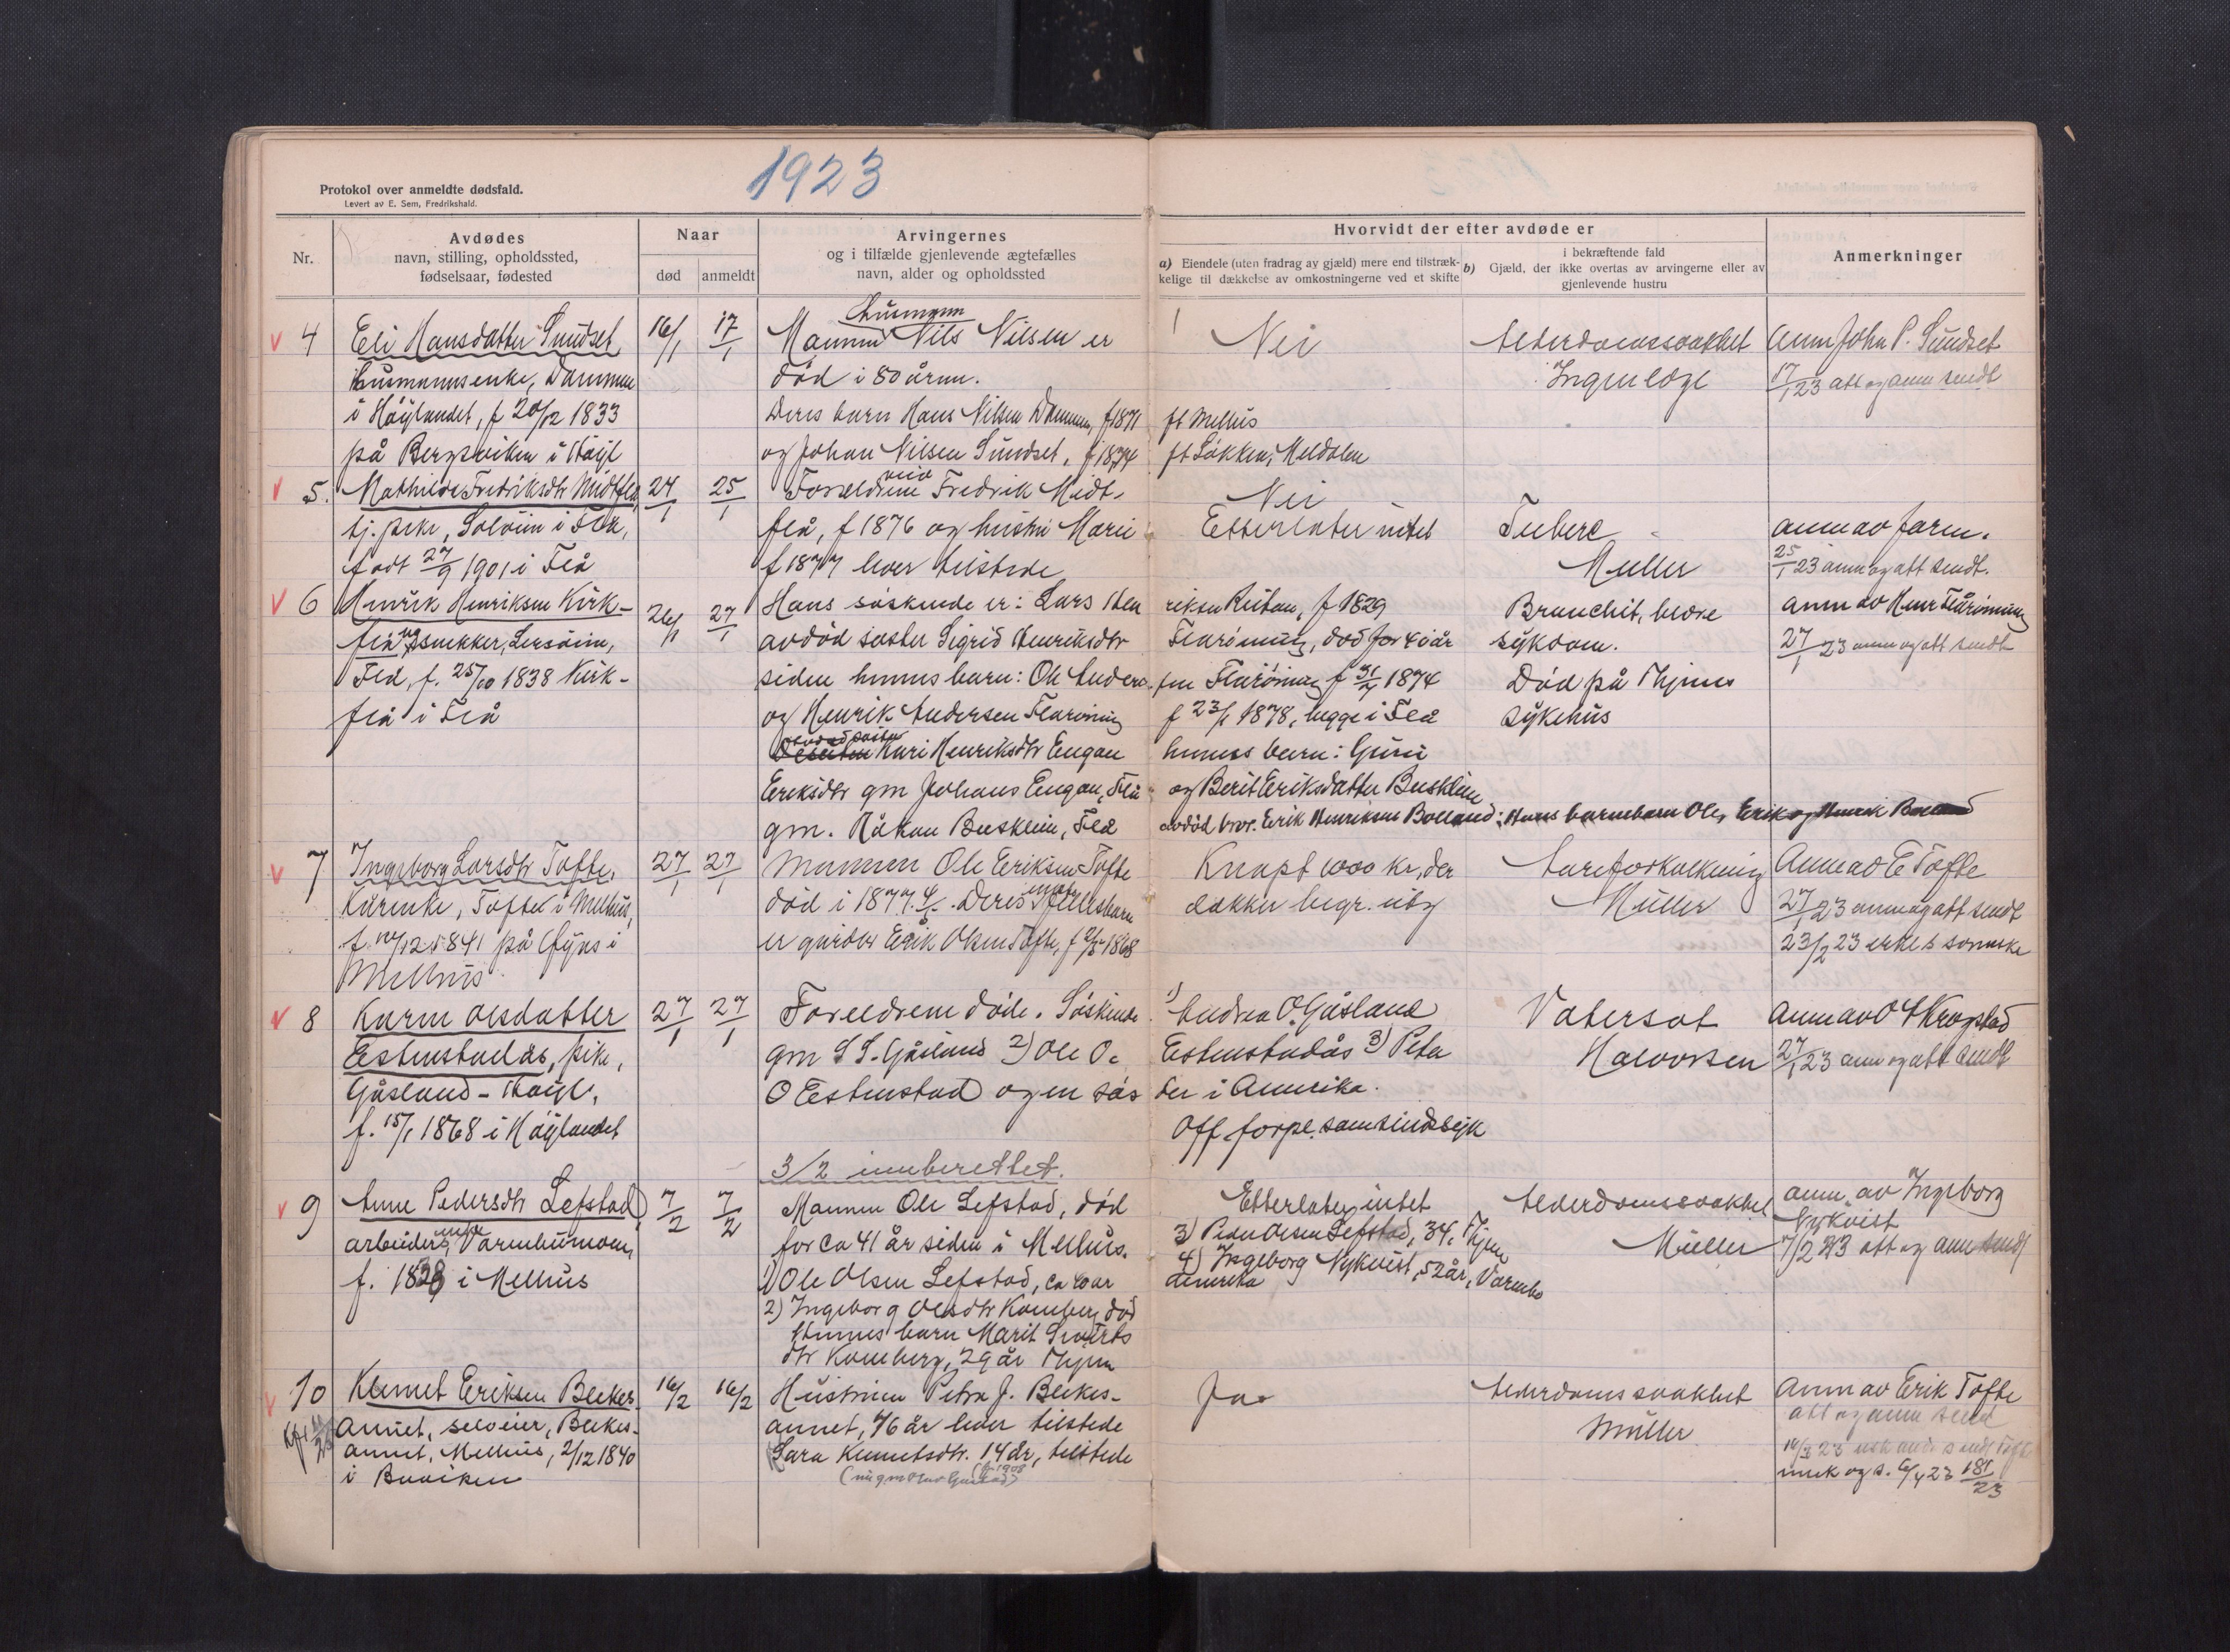 1923
Protokol over anmeldte dødsfald.
Levert av E. Sem, Fredrikshald.
Nr.
Avdødes
navn, stilling, opholdssted,
fødselsaar, fødested
Naar
død
anmeldt
Arvingernes
og i tilfælde gjenlevende ægtefælles
navn, alder og opholdssted
Hvorvidt der efter avdøde er
a) Eiendele (uten fradrag av gjæld) mere end tilstræk-
kelige til dækkelse av omkostningerne ved et skifte
b) i bekræftende fald
Gjæld, der ikke overtas av arvingerne eller av
gjenlevende hustru
Anmerkninger
4
Eli Hansdatter Sundset
husmannsenke, Dammen
i Höylandet, f 20/12 1833
på Bergsviken i Höyl
16/1
17/1
husmann
Mannen Nils Nilsen er
död i 80 årnn.
Deres barn Hans Nilsen Dammen, f 1871
og Johan Nilsen Sundset, f 1874
Nei
ft Melhus
ft Lökken, Meldalen
Alderdomssvakhet
Ingen læge
Anm John P. Sundset
17/1 23 att og anm sendt
5.
Mathilde Fredriksdtr Midtflå,
tj. pike, Solveim i Flå,
född 27/9 1901 i Flå
24/1
25/1
Forældrene Fredrik Midt-
flå, f 1876 og hustru Marie
f 1877 lever tilstede
Nei
Etterlater intet
Tuberc
Müller
anm av faren.
25/1 23 anm og att sendt.
6
Henrik Henriksen Kirk-
flå snekker, Lersöim,
Flå, f. 25/10 1838 Kirk-
flå i Flå
26/1
27/1
Hans söskende er: Lars Hen
avdöd søster Sigrid Henriksdtr
siden hennes barn: Ole Anders
og Henrik Andersen Flåröning
avdöd søster Kari Henriksdtr Engan
Eriksdtr gm Johans Engan, Flå
gm. Håkon Busklein, Flå
riksen Reitan, f 1829
Flåröning, död for 40 år
sen Flåröning f 31/7 1874
f 23/1 1878, begge i Flå
hennes barn: Guru
og Berit Eriksdatter Busklein
avdöd bror. Erik Henriksen Bolland: Hans barnebarn Ole, Erik og Henrik
Bronchit,
sykdom.
Död på Thjems
sykehus
anm av Henr Flåröning
27/1 23 anm og att sendt
7
Ingeborg Larsdtr Tofte,
Kårenke, Tofte i Melhus,
f. 1841 på Gyns i
Melhus
27/1
27/1
Mannen Ole Eriksen Tofte
död i 1877. Deres fellesbarn
er gårdbr Erik Olsen Tofte, f 2/5 1868
Knapt 1000 kr, der
dækker begr. utg
Aareforkalkning
Müller
Anm av E Tofte
27/1 23 anm og att sendt
23/2 23
8
Karen Olsdatter
Estenstadås, pike,
Gåsland - Höyl.
f. 15/1 1868 i Höylandet
27/1
27/1
Foreldrene döde. Söskende
gm S S. Gåsland 2) Ole O.
O Estenstad og en sös
3/2 innberettet.
1) Andrea O. Gåsland
Estenstadås 3) Peter
ter i Amerika.
Off forpl. som sindssyk
Vatersot
Halvorsen
Anm av O Krogstad
27/1 23 anm og att sendt
9
Anne Pedersdtr Lefstad
arbeiders Varmbumoen,
f. 1828 i Melhus
7/2
7/2
Mannen Ole Lefstad, död
for ca 41 år siden i Melhus.
1) Ole Olsen Lefstad, ca 60 år
2) Ingeborg Olsdtr Kamberg död
Hennes barn Marit Siverts
dtr Kamberg, 29 år Thjem
Etterlater intet
3) Peder Olsen Lefstad, 34, Thjem
4) Ingeborg Nykvist, 52 år, Varmbo
Amerika
Alderdomssvakhet
Müller
anm. av Ingeborg
Nykvist
7/2 23 att og anm sendt
10
Klemet Eriksen Blekes-
annet, selveier, Blekes-
annet, Melhus, 2/12 1840
i Buviken
16/2
16/2
Hustruen Petra J. Blekes-
annet, 46 år lever tilstede
Sara Klemetsdtr. 14 år, tilstede
Ja
Alderdomssvakhet
Müller
Anm av Erik Tofte
att og anm sendt
181/23